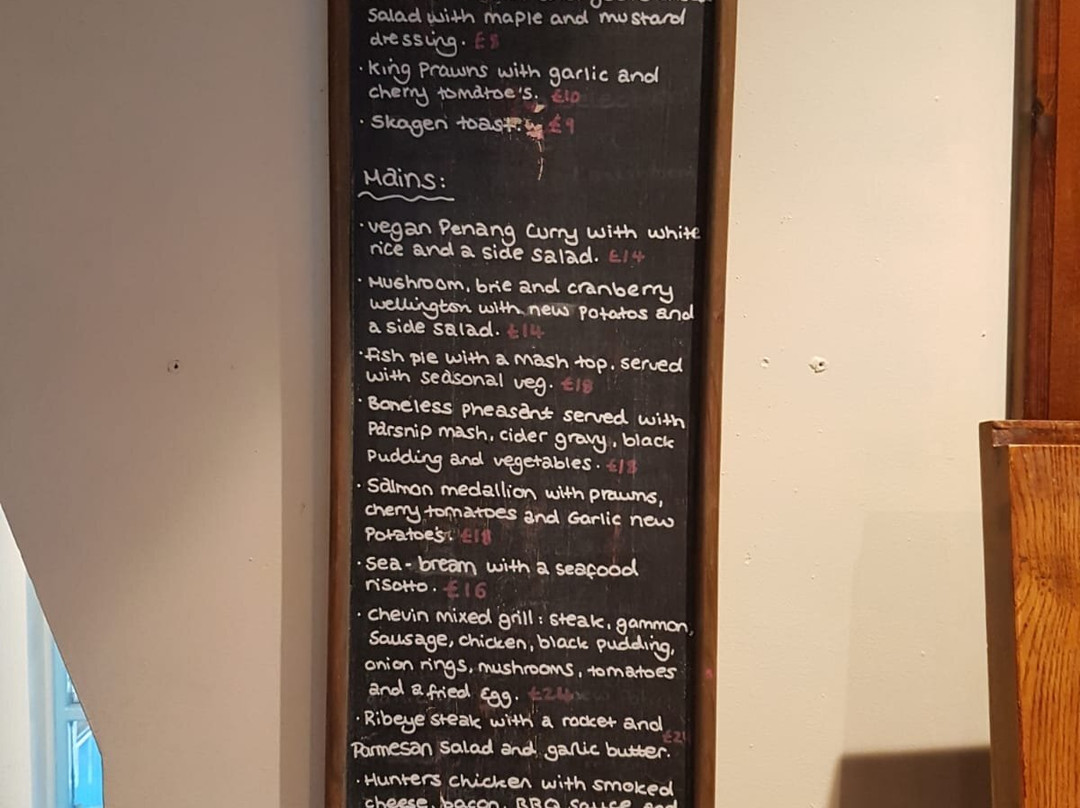 Salad with maple and mustard
dressing. £8
· King Prawns with garlic and
cherry tomatoe's. £10
· Skagen toast. £9
Mains:
· vegan Penang Curry with white
rice and a side salad. £14
· Mushroom, brie and cranberry
wellington with new potatos and
a side salad. £14
· Fish pie with a mash top, served
with seasonal veg. £18
· Boneless pheasant served with
Parsnip mash, cider gravy, black
Pudding and vegetables. £18
· Salmon medallion with prawns,
cherry tomatoes and Garlic new
Potatoe's. £18
· Sea-bream with a seafood
risotto. £16
· Chevin mixed grill: steak, gammon,
Sausage, chicken, black pudding,
onion rings, mushrooms, tomatoes
and a fried Egg. £24
· Ribeye steak with a rocket and
Parmesan Salad and garlic butter.
· Hunters chicken with smoked
cheese, bacon, BBQ Sauce and